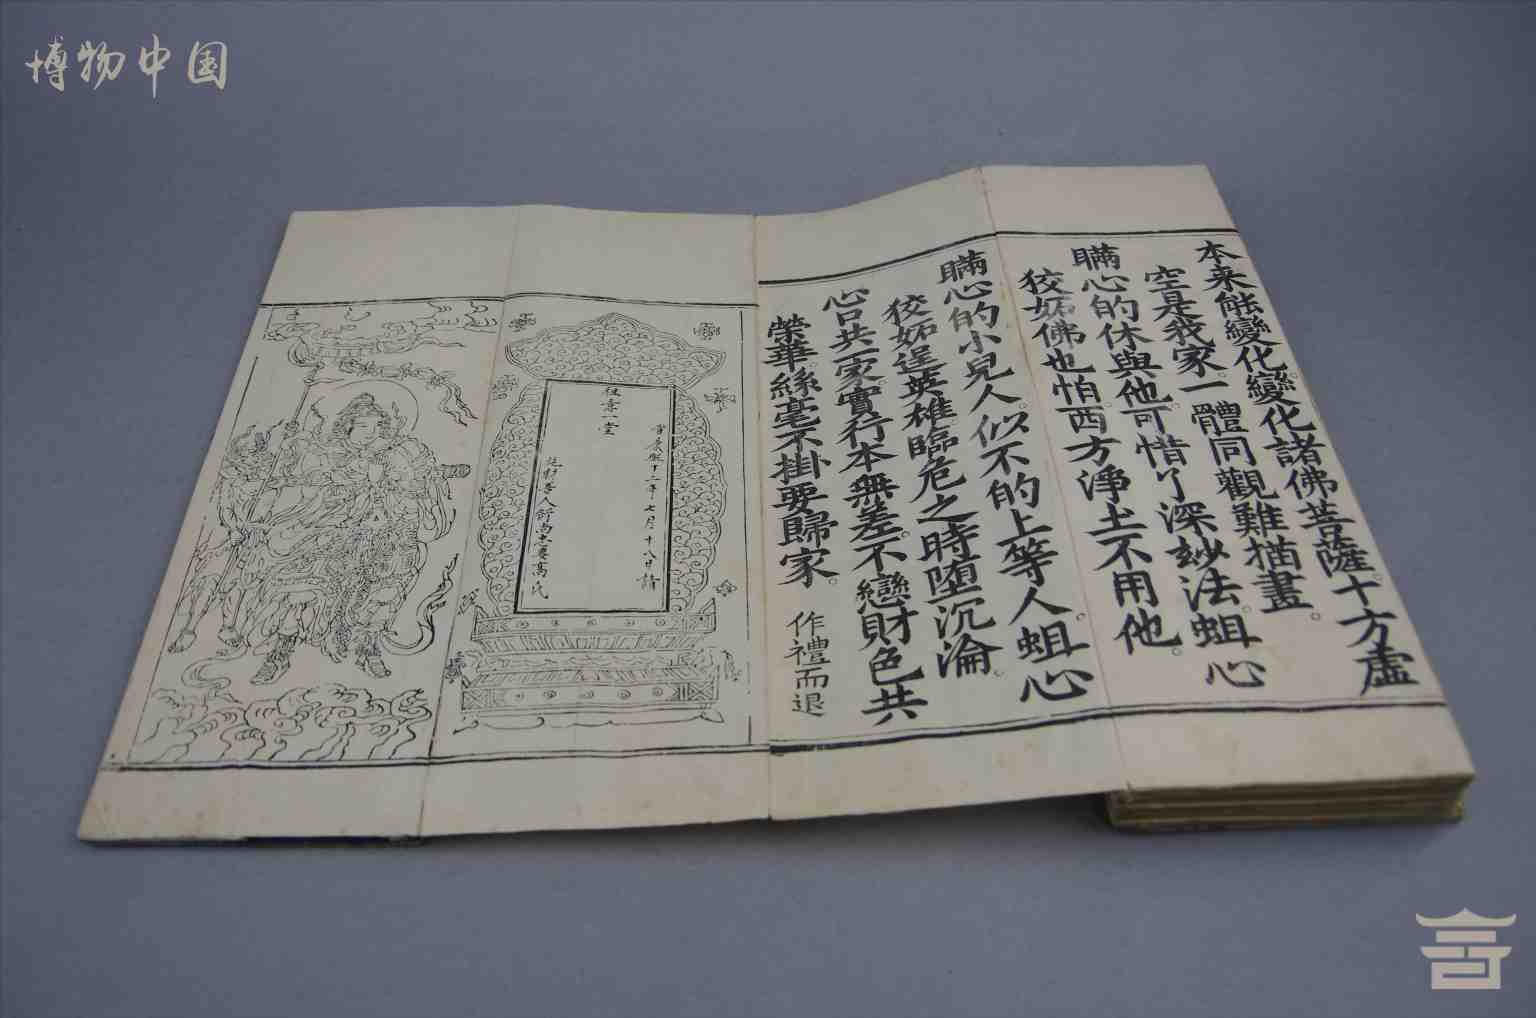 博物中国
本来能變化變化諸佛菩薩十方虛
空是我家一體同觀難描畫
瞞心的休與他可惜了深玅法蛆心
狡妬佛也怕西方淨土不用他
瞞心的小兒人似不的上等人蛆心
狡妬逞英雄臨危之時堕沉淪
心口共一家實行本無差不戀財色共
榮華絲毫不掛要歸家 作禮而退
康熙十二年七月十八日請
经意一堂
高氏